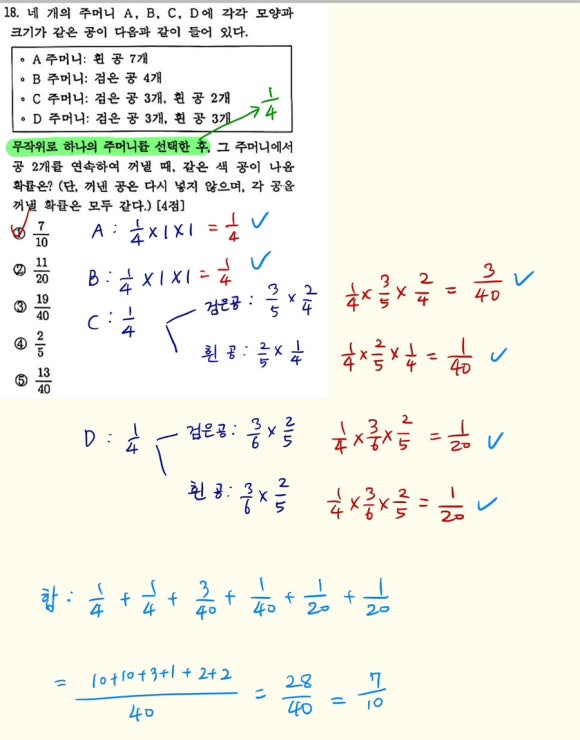 18. 네 개의 주머니 A, B, C, D에 각각 모양과
크기가 같은 공이 다음과 같이 들어 있다.
◦ A 주머니: 흰 공 7개
◦ B 주머니: 검은 공 4개
◦ C 주머니: 검은 공 3개, 흰 공 2개
◦ D 주머니: 검은 공 3개, 흰 공 3개
1/4
무작위로 하나의 주머니를 선택한 후, 그 주머니에서
공 2개를 연속하여 꺼낼 때, 같은 색 공이 나올
확률은? (단, 꺼낸 공은 다시 넣지 않으며, 각 공을
꺼낼 확률은 모두 같다.) [4점]
① 7/10
② 11/20
③ 19/40
④ 2/5
⑤ 13/40
A : 1/4 × 1 × 1 = 1/4 ✓
B : 1/4 × 1 × 1 = 1/4 ✓
C : 1/4
검은공 : 3/5 × 2/4 1/4 × 3/5 × 2/4 = 3/40 ✓
흰 공 : 2/5 × 1/4 1/4 × 2/5 × 1/4 = 1/40 ✓
D : 1/4
검은공 : 3/6 × 2/5 1/4 × 3/6 × 2/5 = 1/20 ✓
흰 공 : 3/6 × 2/5 1/4 × 3/6 × 2/5 = 1/20 ✓
합 : 1/4 + 1/4 + 3/40 + 1/40 + 1/20 + 1/20
= (10+10+3+1+2+2)/40 = 28/40 = 7/10